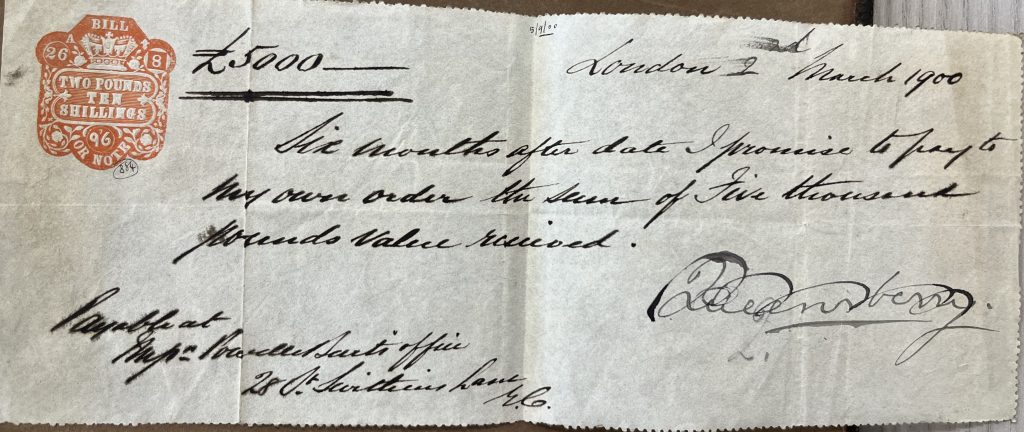 BILL
A 4
26 8
TWO POUNDS
TEN
SHILLINGS
96
OR NOTE
884
5/9/00
£5000
London 2 March 1900
Six months after date I promise to pay to
my own order the sum of Five thousand
pounds value received.
Queensberry.
Payable at
Office
28 St. Swithins Lane
E.C.